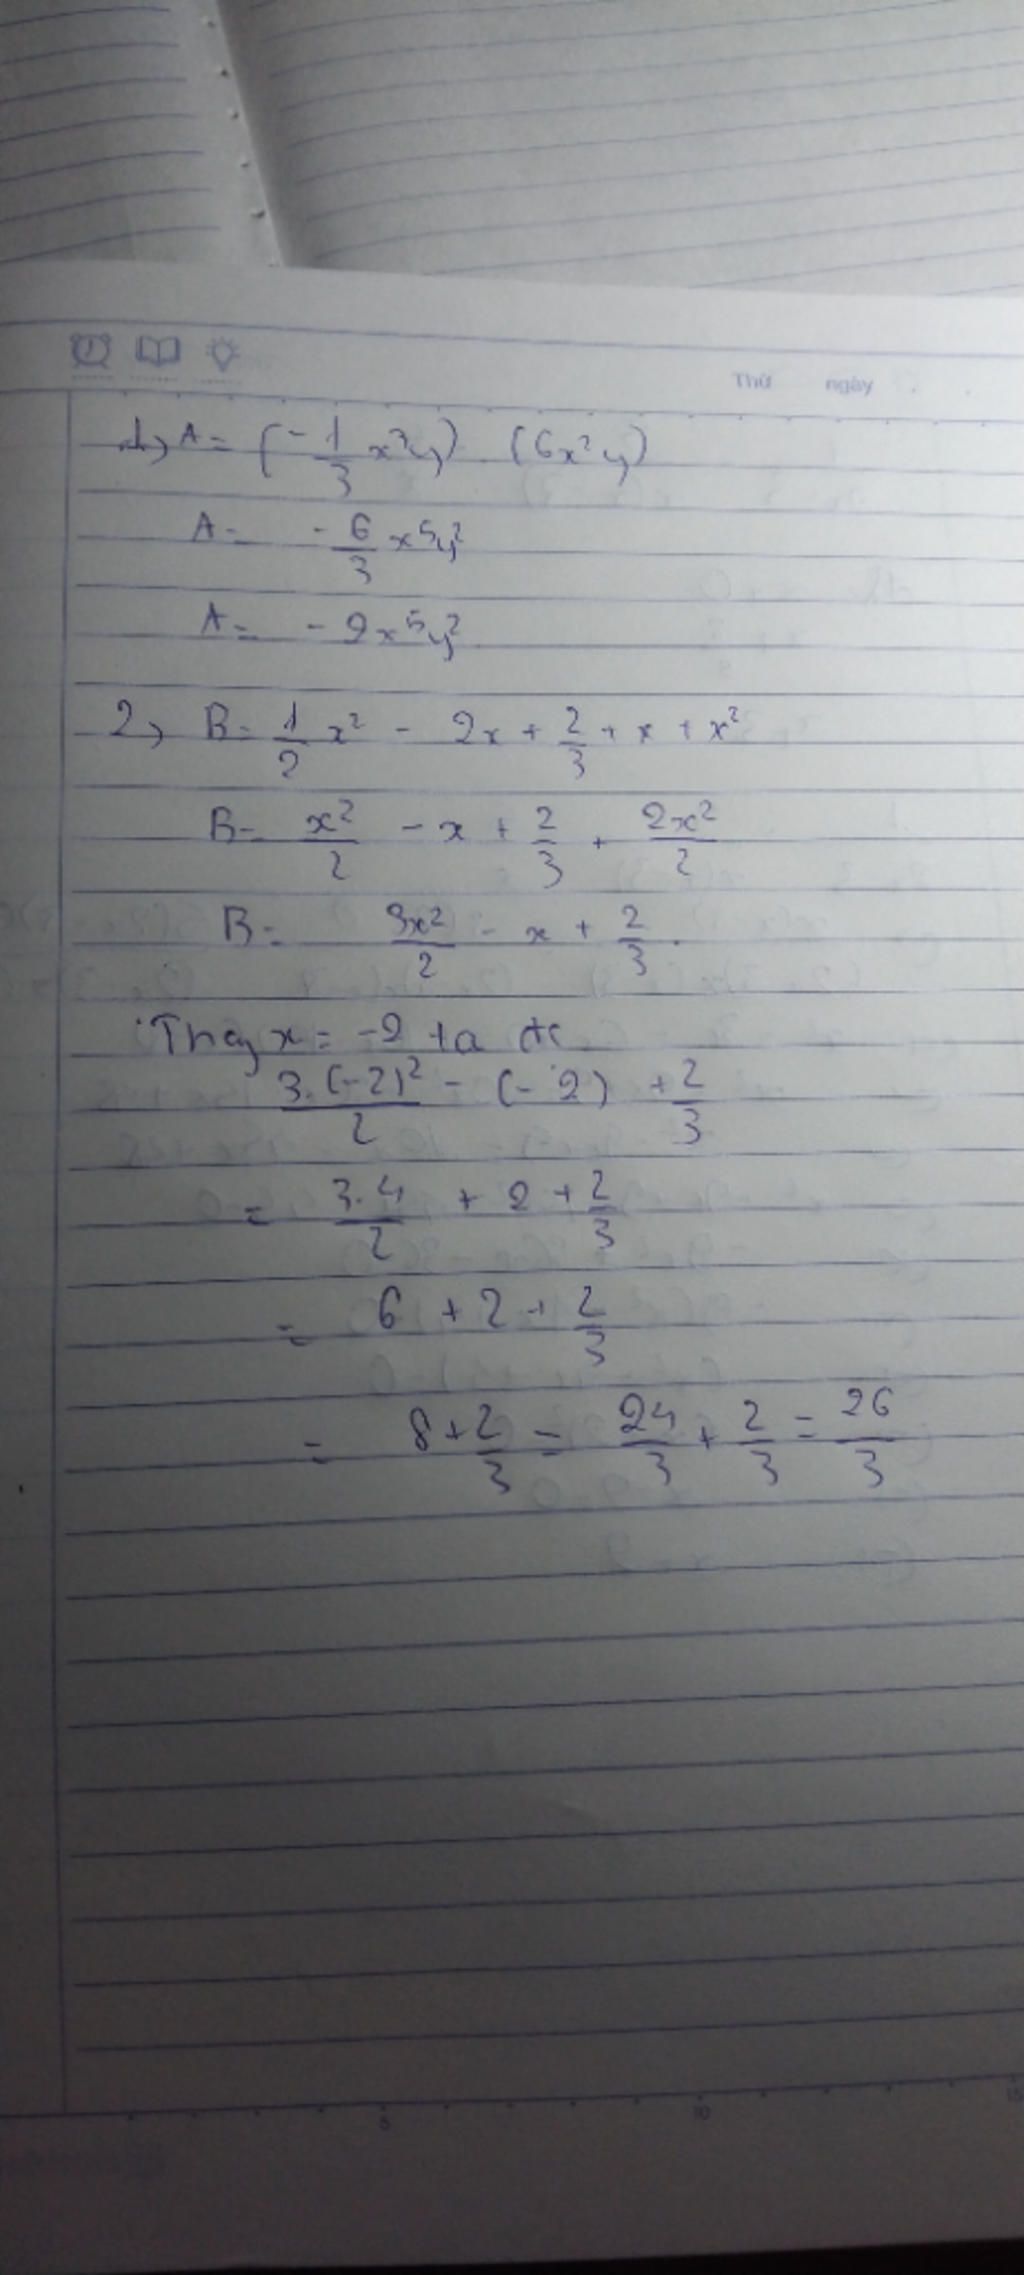 Thứ ngày
1, A = (-1/3 x³y) (6x²y)
A = -6/3 x⁵y²
A = -2x⁵y²
2, B = 1/2 x² - 2x + 2/3 + x + x²
B = x²/2 - x + 2/3 + 2x²/2
B = 3x²/2 - x + 2/3.
Thay x = -2 ta đc
3.(-2)²/2 - (-2) + 2/3
= 3.4/2 + 2 + 2/3
= 6 + 2 + 2/3
= 8 + 2/3 = 24/3 + 2/3 = 26/3
5 10 15